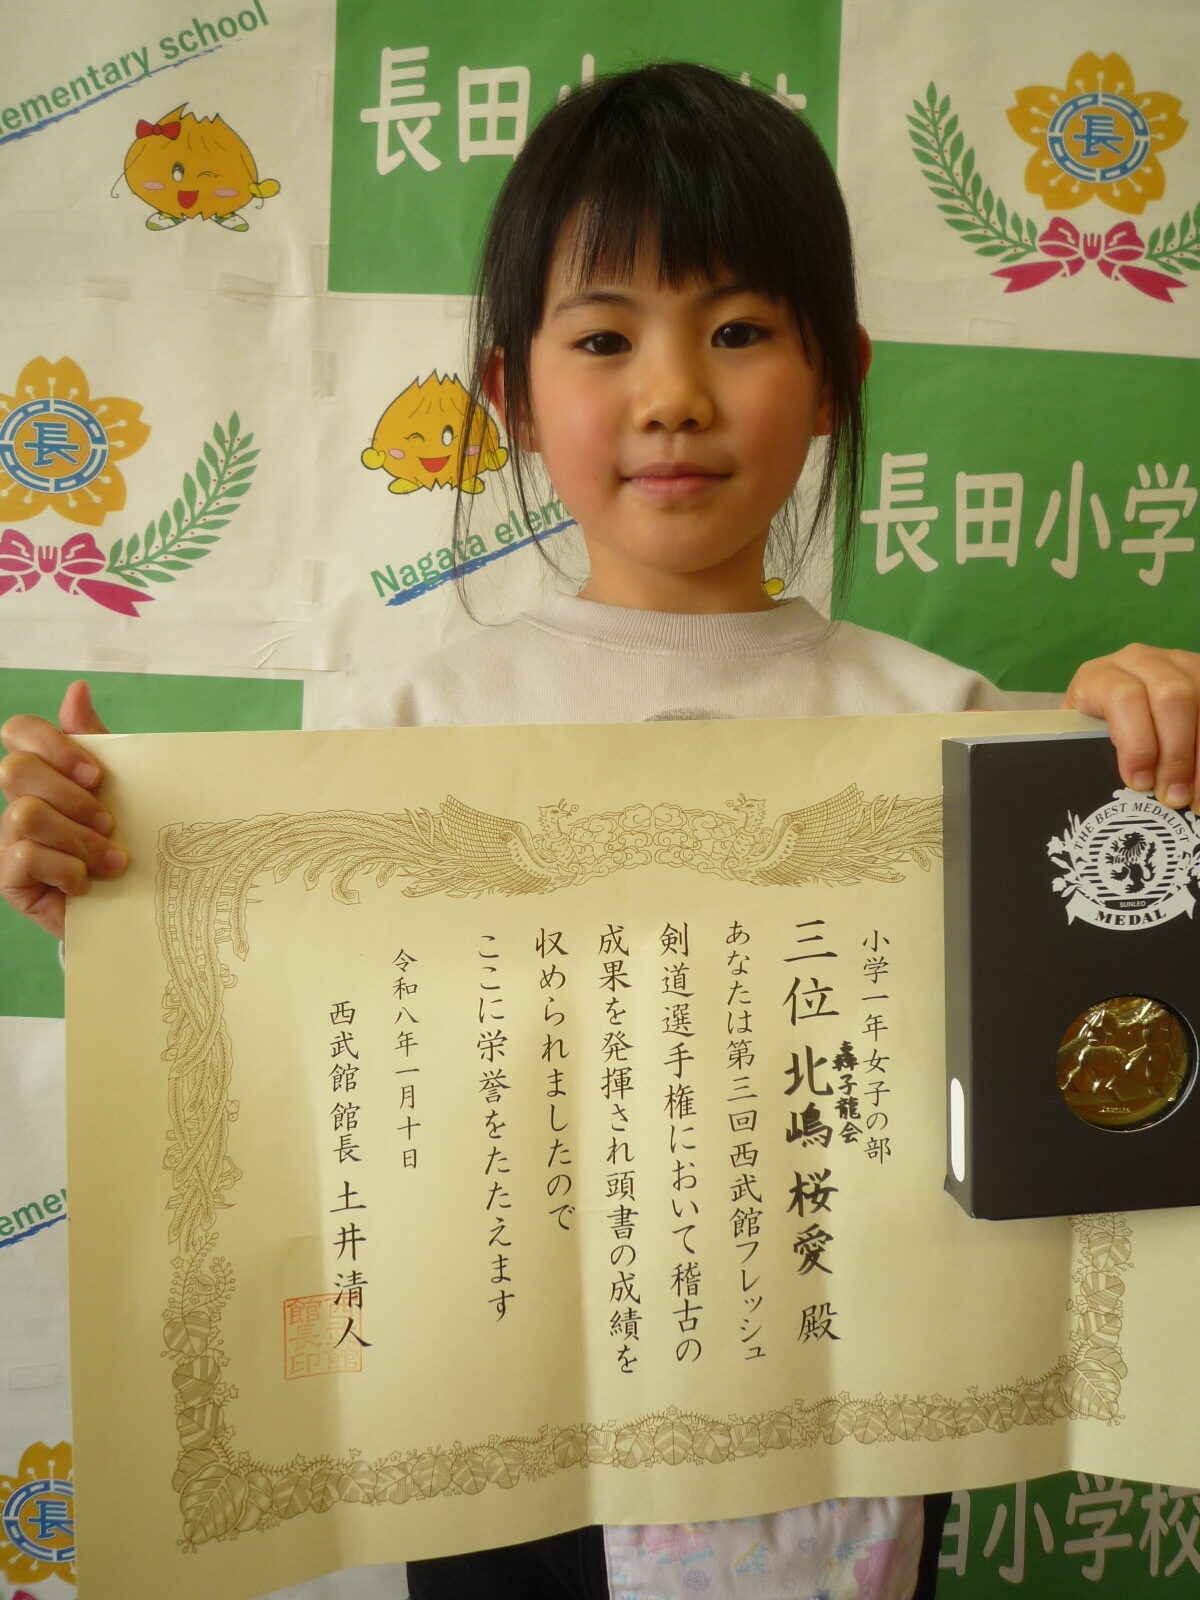 ementary school
長田小
長
長
Nagata elem
長田小学
THE BEST MEDALIST
SUNLEO
MEDAL
小学一年女子の部
三位 北嶋桜愛 殿
あなたは第三回西武館フレッシュ
剣道選手権において稽古の
成果を発揮され頭書の成績を
収められましたので
ここに栄誉をたたえます
令和八年一月十日
西武館館長 土井清人
西武館
館長印
emen
長
田小学校